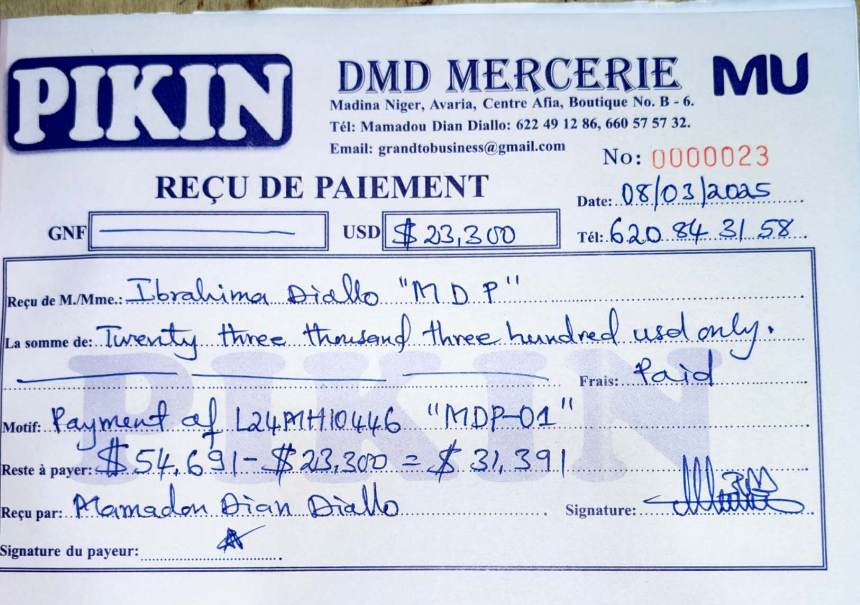 PIKIN
DMD MERCERIE MU
Madina Niger, Avaria, Centre Afia, Boutique No. B - 6.
Tél: Mamadou Dian Diallo: 622 49 12 86, 660 57 57 32.
Email: grandtobusiness@gmail.com
No: 0000023
REÇU DE PAIEMENT
Date: 08/03/2025
GNF USD $ 23,300
Tél: 620 84 31 58
Reçu de M./Mme.: Ibrahima Diallo "M D P"
La somme de: Twenty three thousand three hundred usd only.
Frais: Paid
PIKIN
Motif: Payment of L24MH10446 "MDP-01"
Reste à payer: $ 54,691 - $ 23,300 = $ 31,391
Reçu par: Mamadou Dian Diallo
Signature:
Signature du payeur: